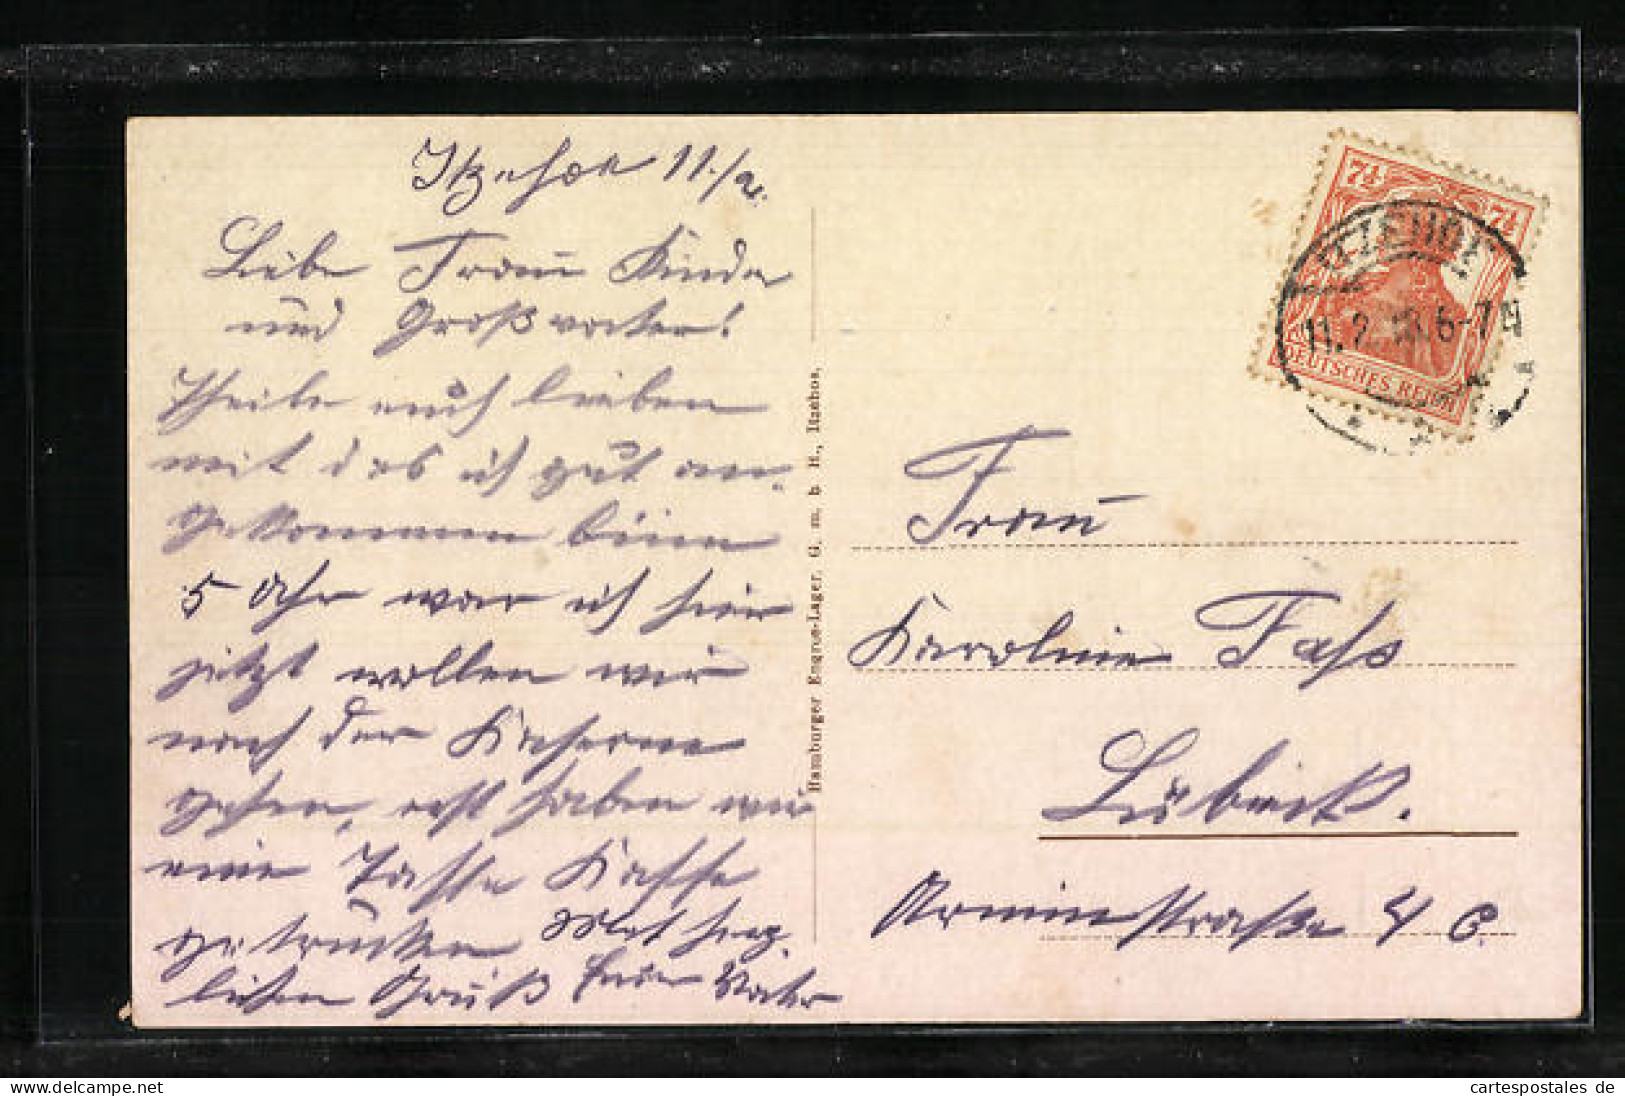 Itzehoe 11./2.
Liebe Frau Kinder
und Großvater!
Theile euch lieben
mit das ich gut an-
gekommen bin
5 Uhr war ich hier
jetzt wollen wir
nach der Kaserne
gehen, erst haben wir
eine Tasse Kaffe
getrunken Mit herz-
lichen Gruß Euer Vater
Hamburger Engros-Lager, G. m. b. H., Itzehoe.
7½ 7½
DEUTSCHES REICH
ITZEHOE
11.2.18.6-7N
Frau
Karolnie Fass
Lübeck.
Arminstraße 4 c.
cartespostales de